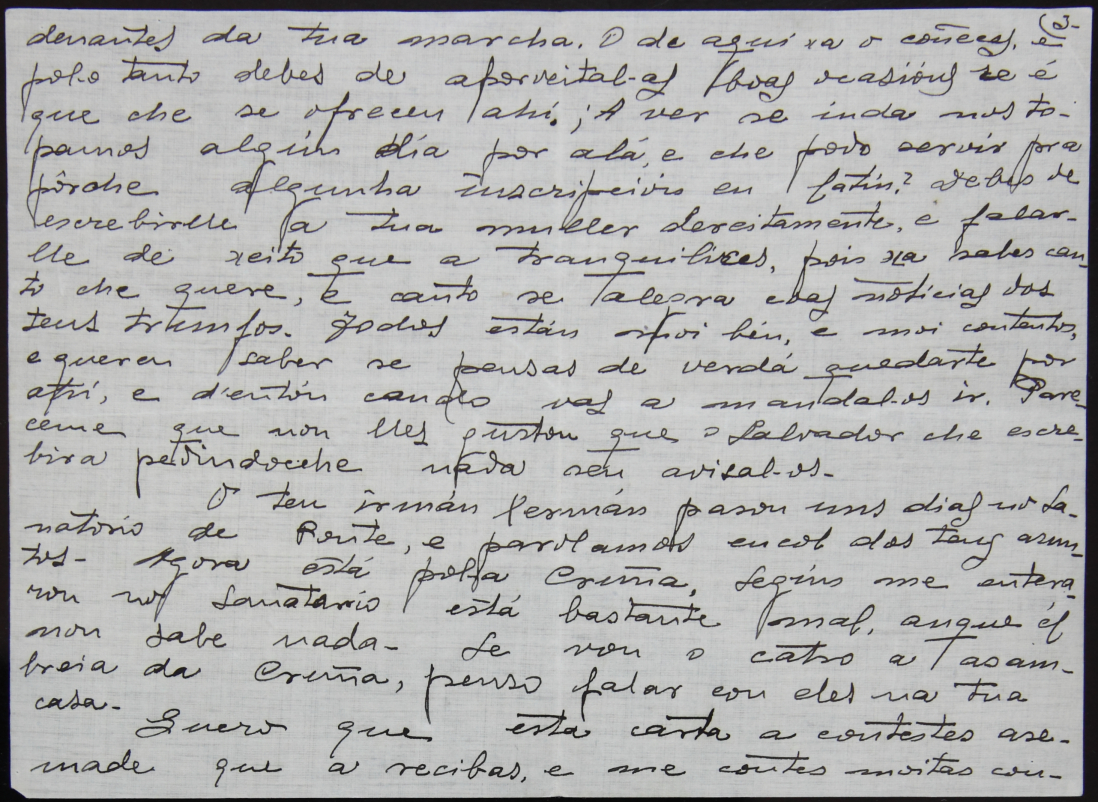 (3-
denantes da tua marcha. O de aquí xa o coñeces, é
polo tanto debes de aporveital-as boas ocasións se é
que che se ofrecen ahí. ¡A ver se inda nos to-
pamos algún día por alá, e che podo servir pra
pôrche algunha inscripción en latín? Debes de
escrebirlle a tua muller dereitamente, e falar-
lle de xeito que a tranquilices, pois xa sabes can-
to che quere, e canto se alegra coas noticias dos
teus trunfos. Todos están moi ben, e moi contentos,
e queren saber se pensas de verdá quedarte por
ahí, e d'entón cando vas a mandal-os ir. Pare-
ceme que non lles gustou que o Salvador che escre-
bira pedindoche nada sen avisal-os-
O teu irmán Xermán pasou uns dias no Sa-
natorio de Ponte, e parolamos encol dos teus asun-
tos- Agora está pol-a Cruña, segús me entera-
ron no Sanatario está bastante mal, anque él
non sabe nada- Se vou o catro a asam-
breia da Cruña, penso falar con eles na tua
casa-
Quero que esta carta a contestes ase-
made que a recibas, e me contes moitas cou-